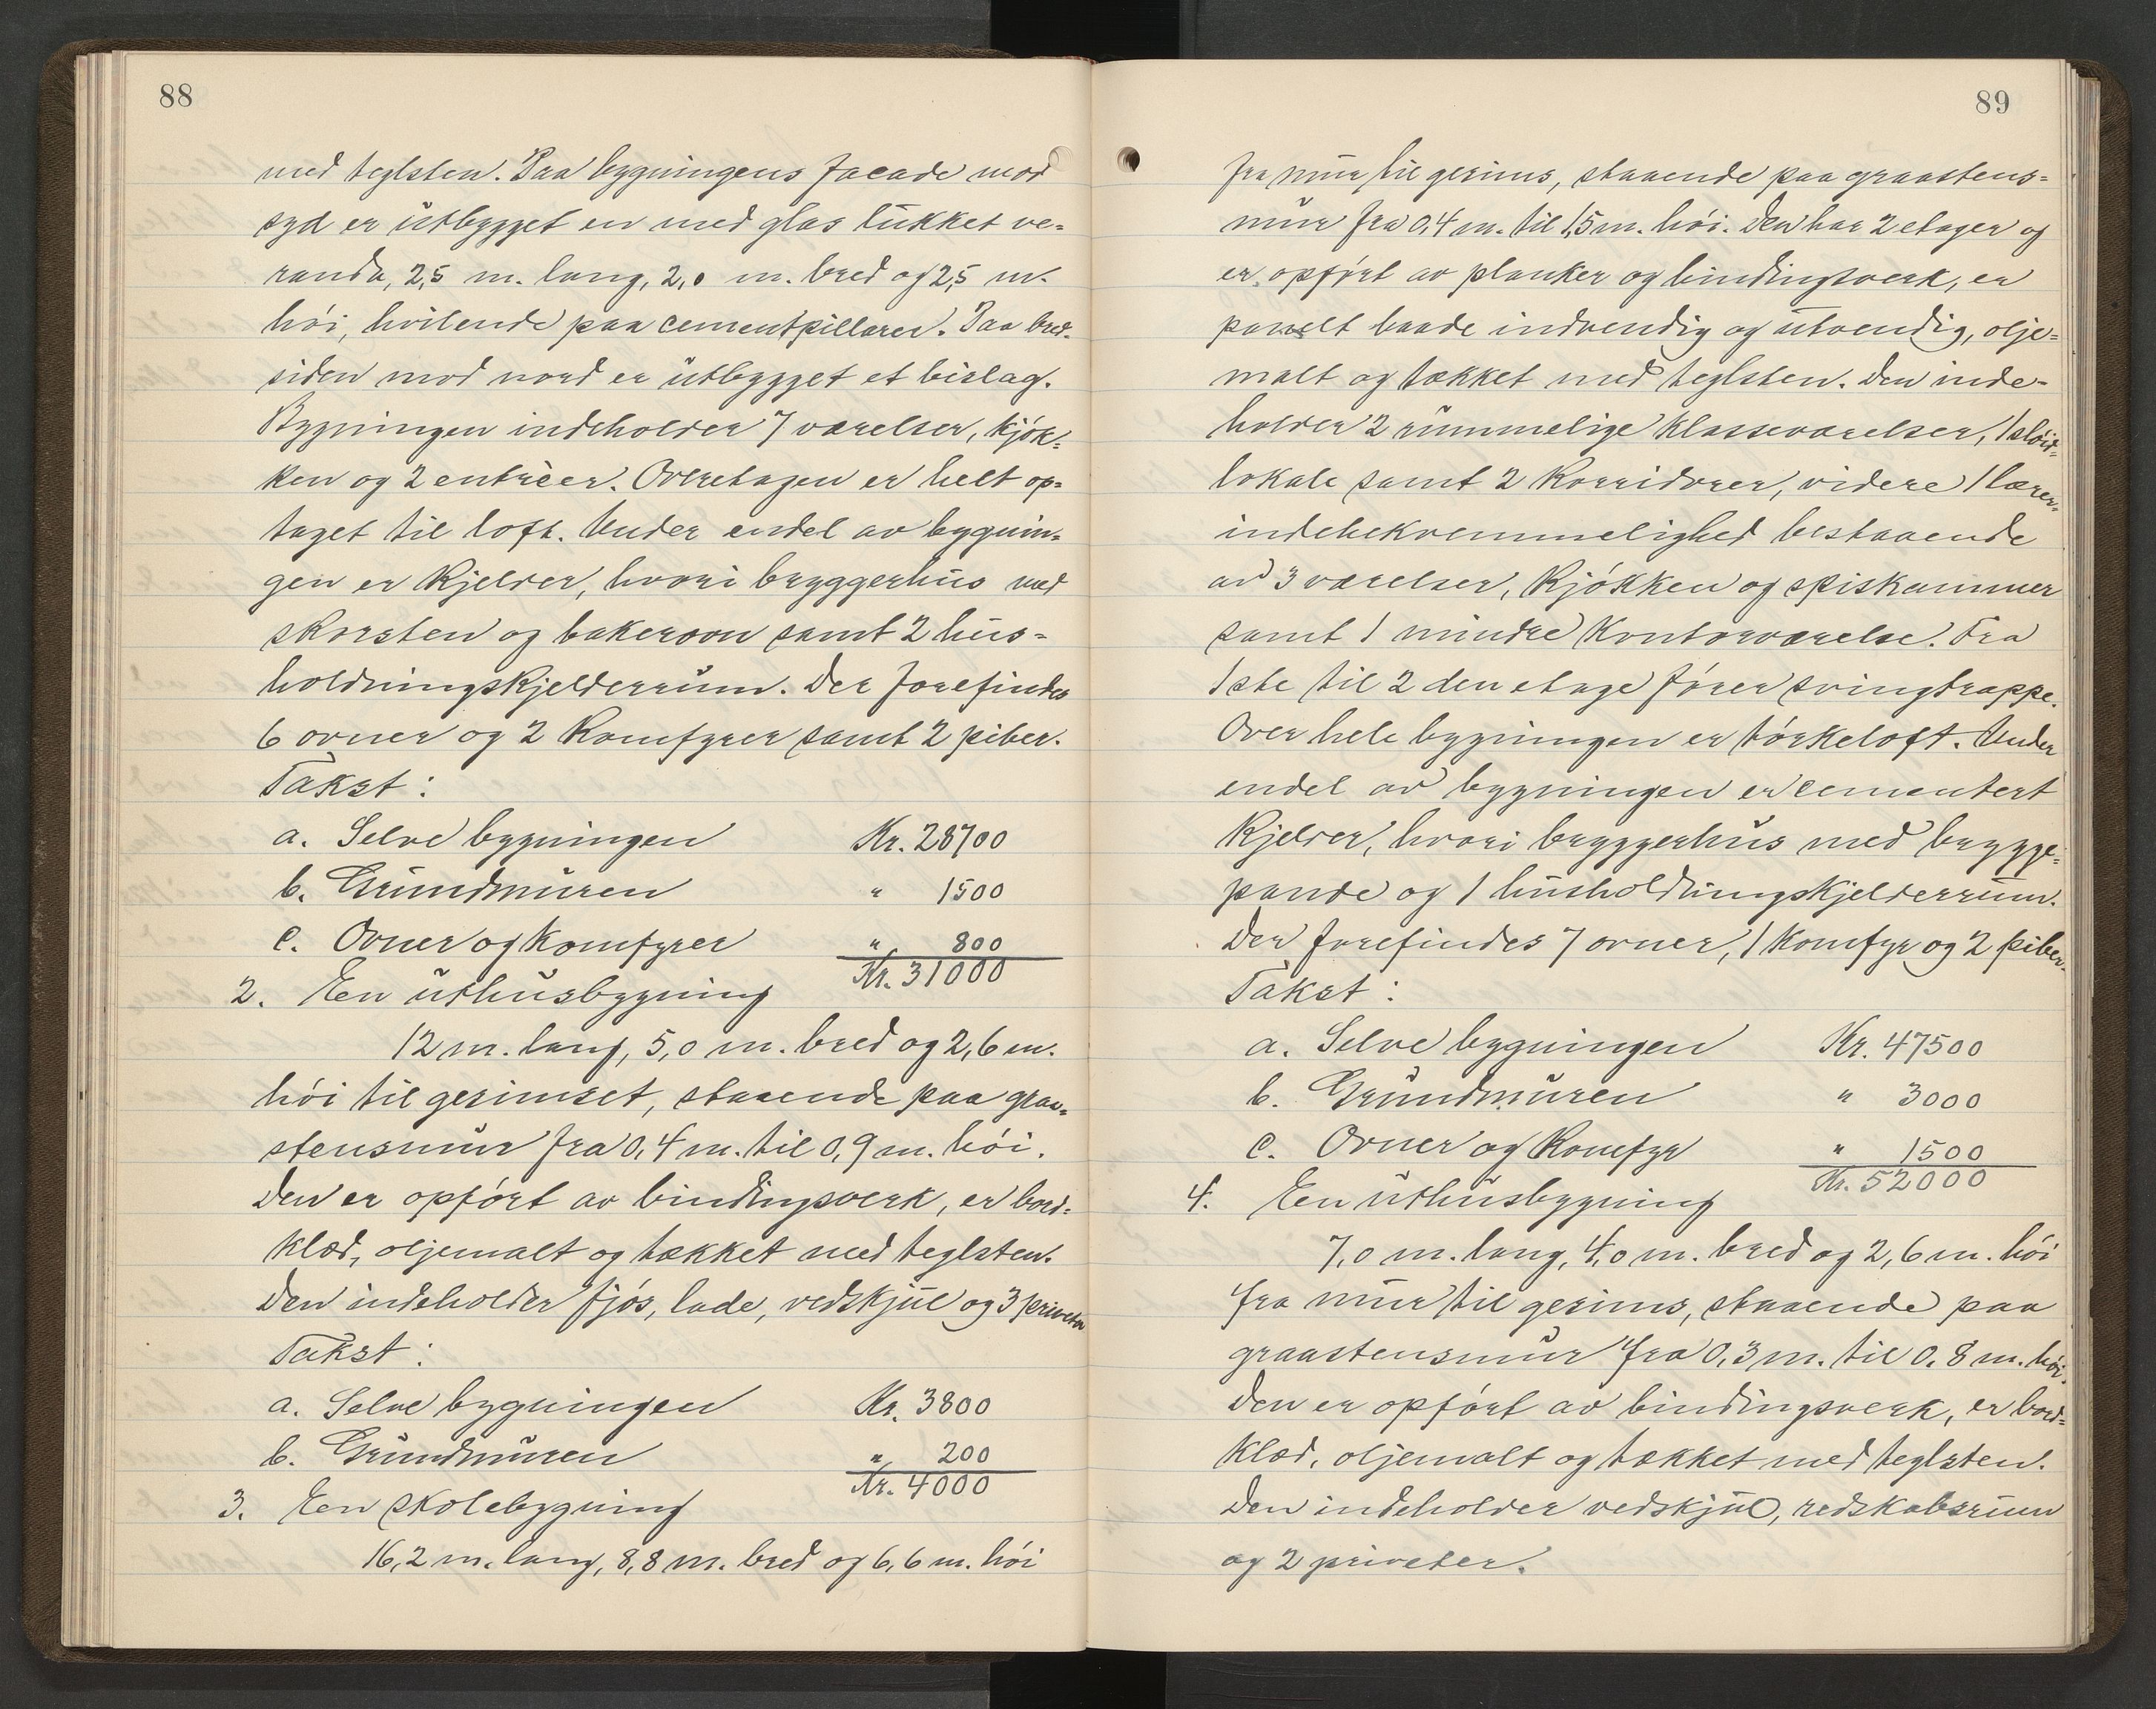 88
med teglsten. Paa bygningens facade mod
syd er utbygget en med glas lukket ve-
randa, 2,5 m. lang, 2,0 m. bred og 2,5 m.
høi, hvilende paa cementpillarer. Paa bred-
siden mod nord er utbygget et bislag.
Bygningen indeholder 7 værelser, kjøk-
ken og 2 entrèer. Overetagen er helt op-
taget til loft. Under endel av bygnin-
gen er kjelder, hvori bryggerhus med
skorsten og bakerovn samt 2 hus-
holdningskjelderrum. Der forefindes
6 ovner og 2 komfyrer samt 2 piber.
Takst:
a. Selve bygningen Kr. 28700
b. Grundmuren " 1500
c. Ovner og komfyrer " 800
Kr. 31000
2. En uthusbygning
12 m. lang, 5,0 m. bred og 2,6 m.
høi til gesimset, staaende paa graa-
stensmur fra 0,4 m. til 0,9 m. høi.
Den er opført av bindingsverk, er bord-
klæd, oljemalt og tækket med teglsten.
Den indeholder fjøs, lade, vedskjul og 3 priveter
Takst:
a. Selve bygningen Kr. 3800
b. Grundmuren " 200
Kr. 4000
3. En skolebygning
16,2 m. lang, 8,8 m. bred og 6,6 m. høi
89
fra mur til gesims, staaende paa graastens-
mur fra 0,4 m. til 1,5 m. høi. Den har 2 etager og
er opført av planker og bindingsverk, er
panelt baade indvendig og utvendig, olje-
malt og tækket med teglsten. Den inde-
holder 2 rummelige klasseværelser, 1 sløid-
lokale samt 2 korridorer, videre 1 lærer-
indebekvemmelighed bestaaende
av 3 værelser, kjøkken og spiskammer
samt 1 mindre kontorværelse. Fra
1ste til 2den etage fører svingtrappe.
Over hele bygningen er tørkeloft. Under
endel av bygningen er cementert
kjelder, hvori bryggerhus med brygge-
pande og 1 husholdningskjelderrum.
Der forefindes 7 ovner, 1 komfyr og 2 piber.
Takst:
a. Selve bygningen Kr. 47500
b. Grundmuren " 3000
c. Ovner og komfyr " 1500
Kr. 52000
4. En uthusbygning
7,0 m. lang, 4,0 m. bred og 2,6 m. høi
fra mur til gesims, staaende paa
graastensmur fra 0,3 m. til 0,8 m. høi.
Den er opført av bindingsverk, er bord-
klæd, oljemalt og tækket med teglsten.
Den indeholder vedskjul, redskabsrum
og 2 priveter.